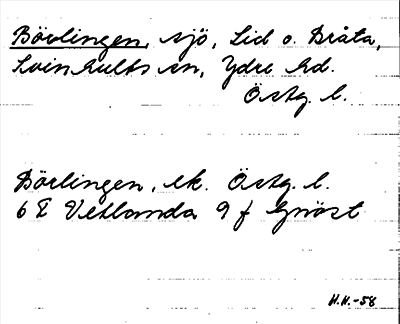 Bövlingen, sjö, Lid o. Bråta,
Svinhults sn, Ydre hd.
Östg. l.
Bövlingen, ek. Östg. l.
6 F Vetlanda 9 f Gnöst
H.H.-58